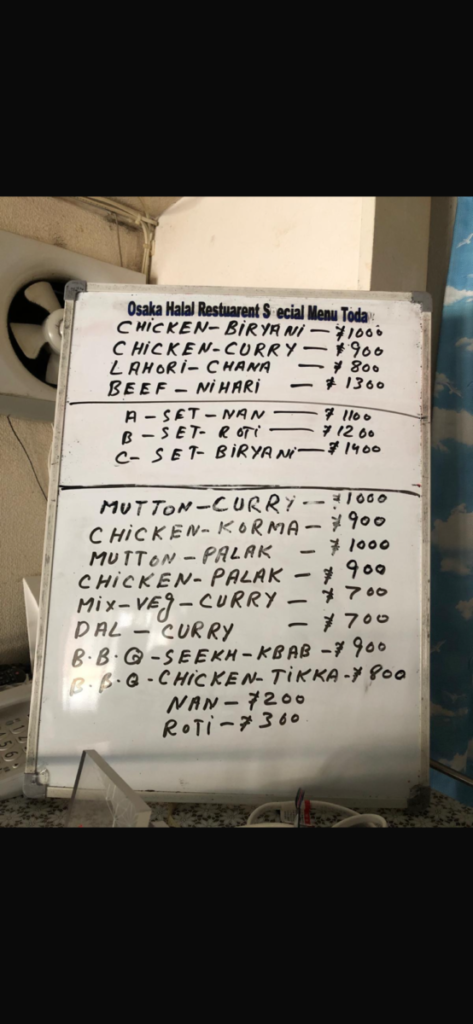 Osaka Halal Restuarent S ecial Menu Toda
CHICKEN-BIRYANI - ¥1000
CHICKEN-CURRY - ¥900
LAHORI-CHANA - ¥800
BEEF - NIHARI - ¥1300
A-SET-NAN - ¥1100
B-SET-ROTI - ¥1200
C-SET-BIRYANI - ¥1400
MUTTON-CURRY - ¥1000
CHICKEN-KORMA - ¥900
MUTTON-PALAK - ¥1000
CHICKEN-PALAK - ¥900
MIX-VEg-CURRY - ¥700
DAL-CURRY - ¥700
B.B.Q-SEEKH-KBAB-¥900
B.B.Q-CHICKEN-TIKKA-¥800
NAN-¥200
ROTI-¥300